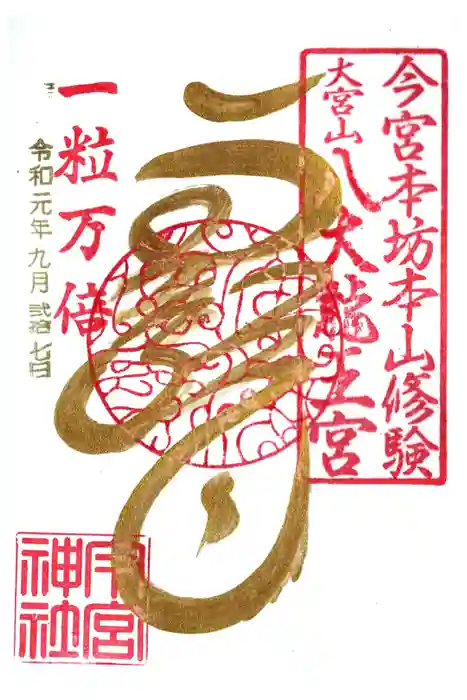 今宮本坊本山修験
大宮山八大龍王宮
一粒万倍
令和元年九月弐拾七日
今宮神社